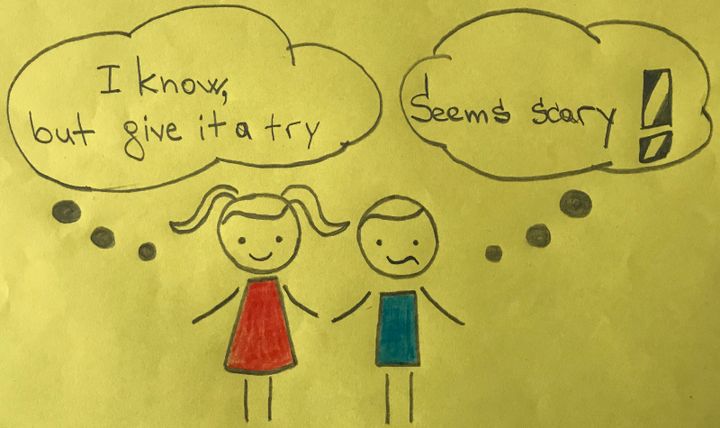 I know,
but give it a try
Seems scary!